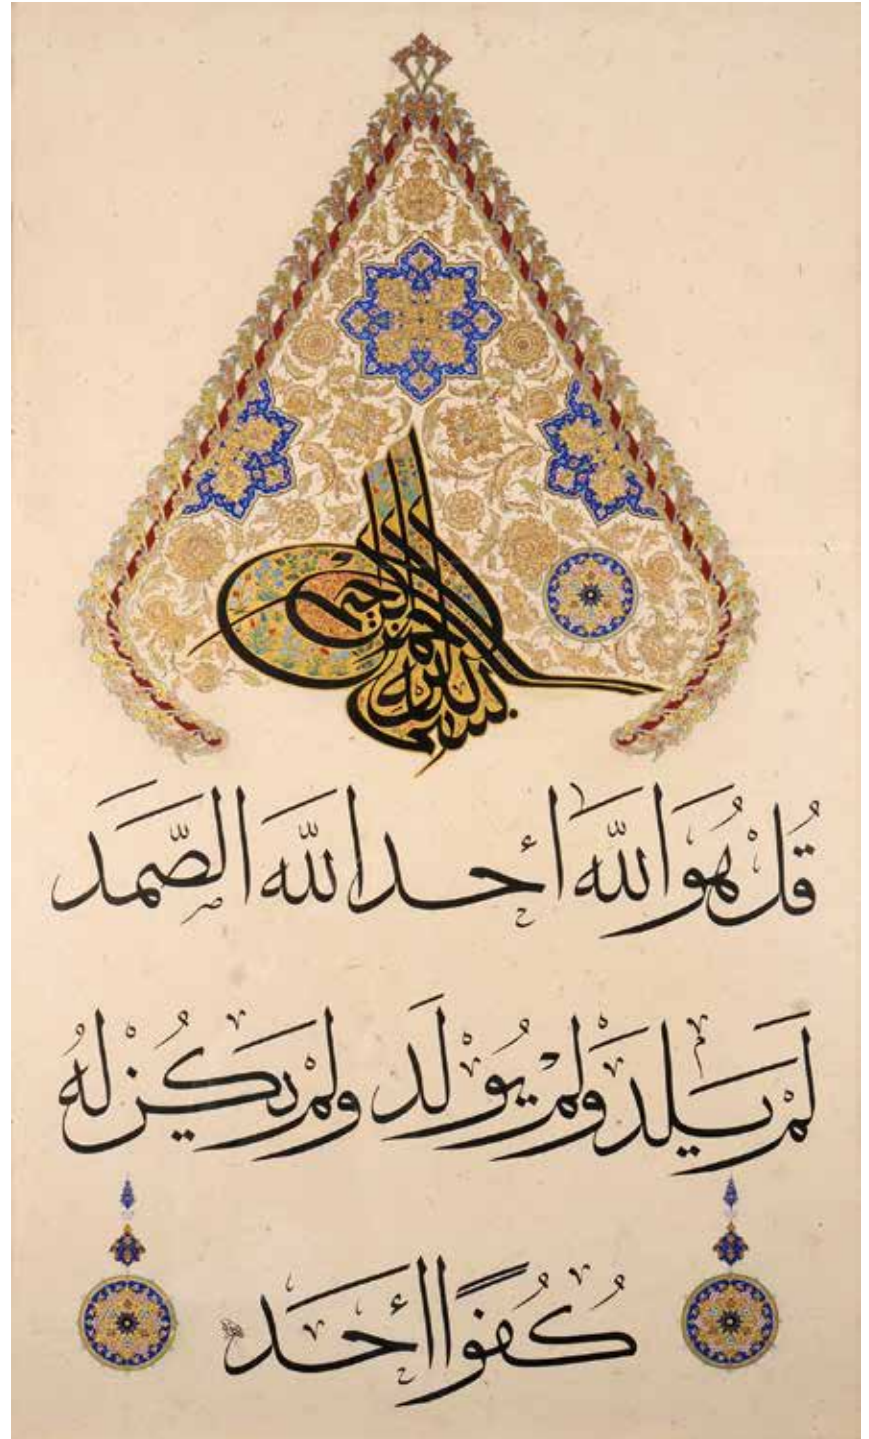 بسم الله الرحمن الرحيم
قُل هُوَ اللّٰه أحد اللّٰه الصّمد
لَمْ يلد ولمْ يُوْلَد ولمْ يكُنْ لهُ
كُفُوًا أحَد